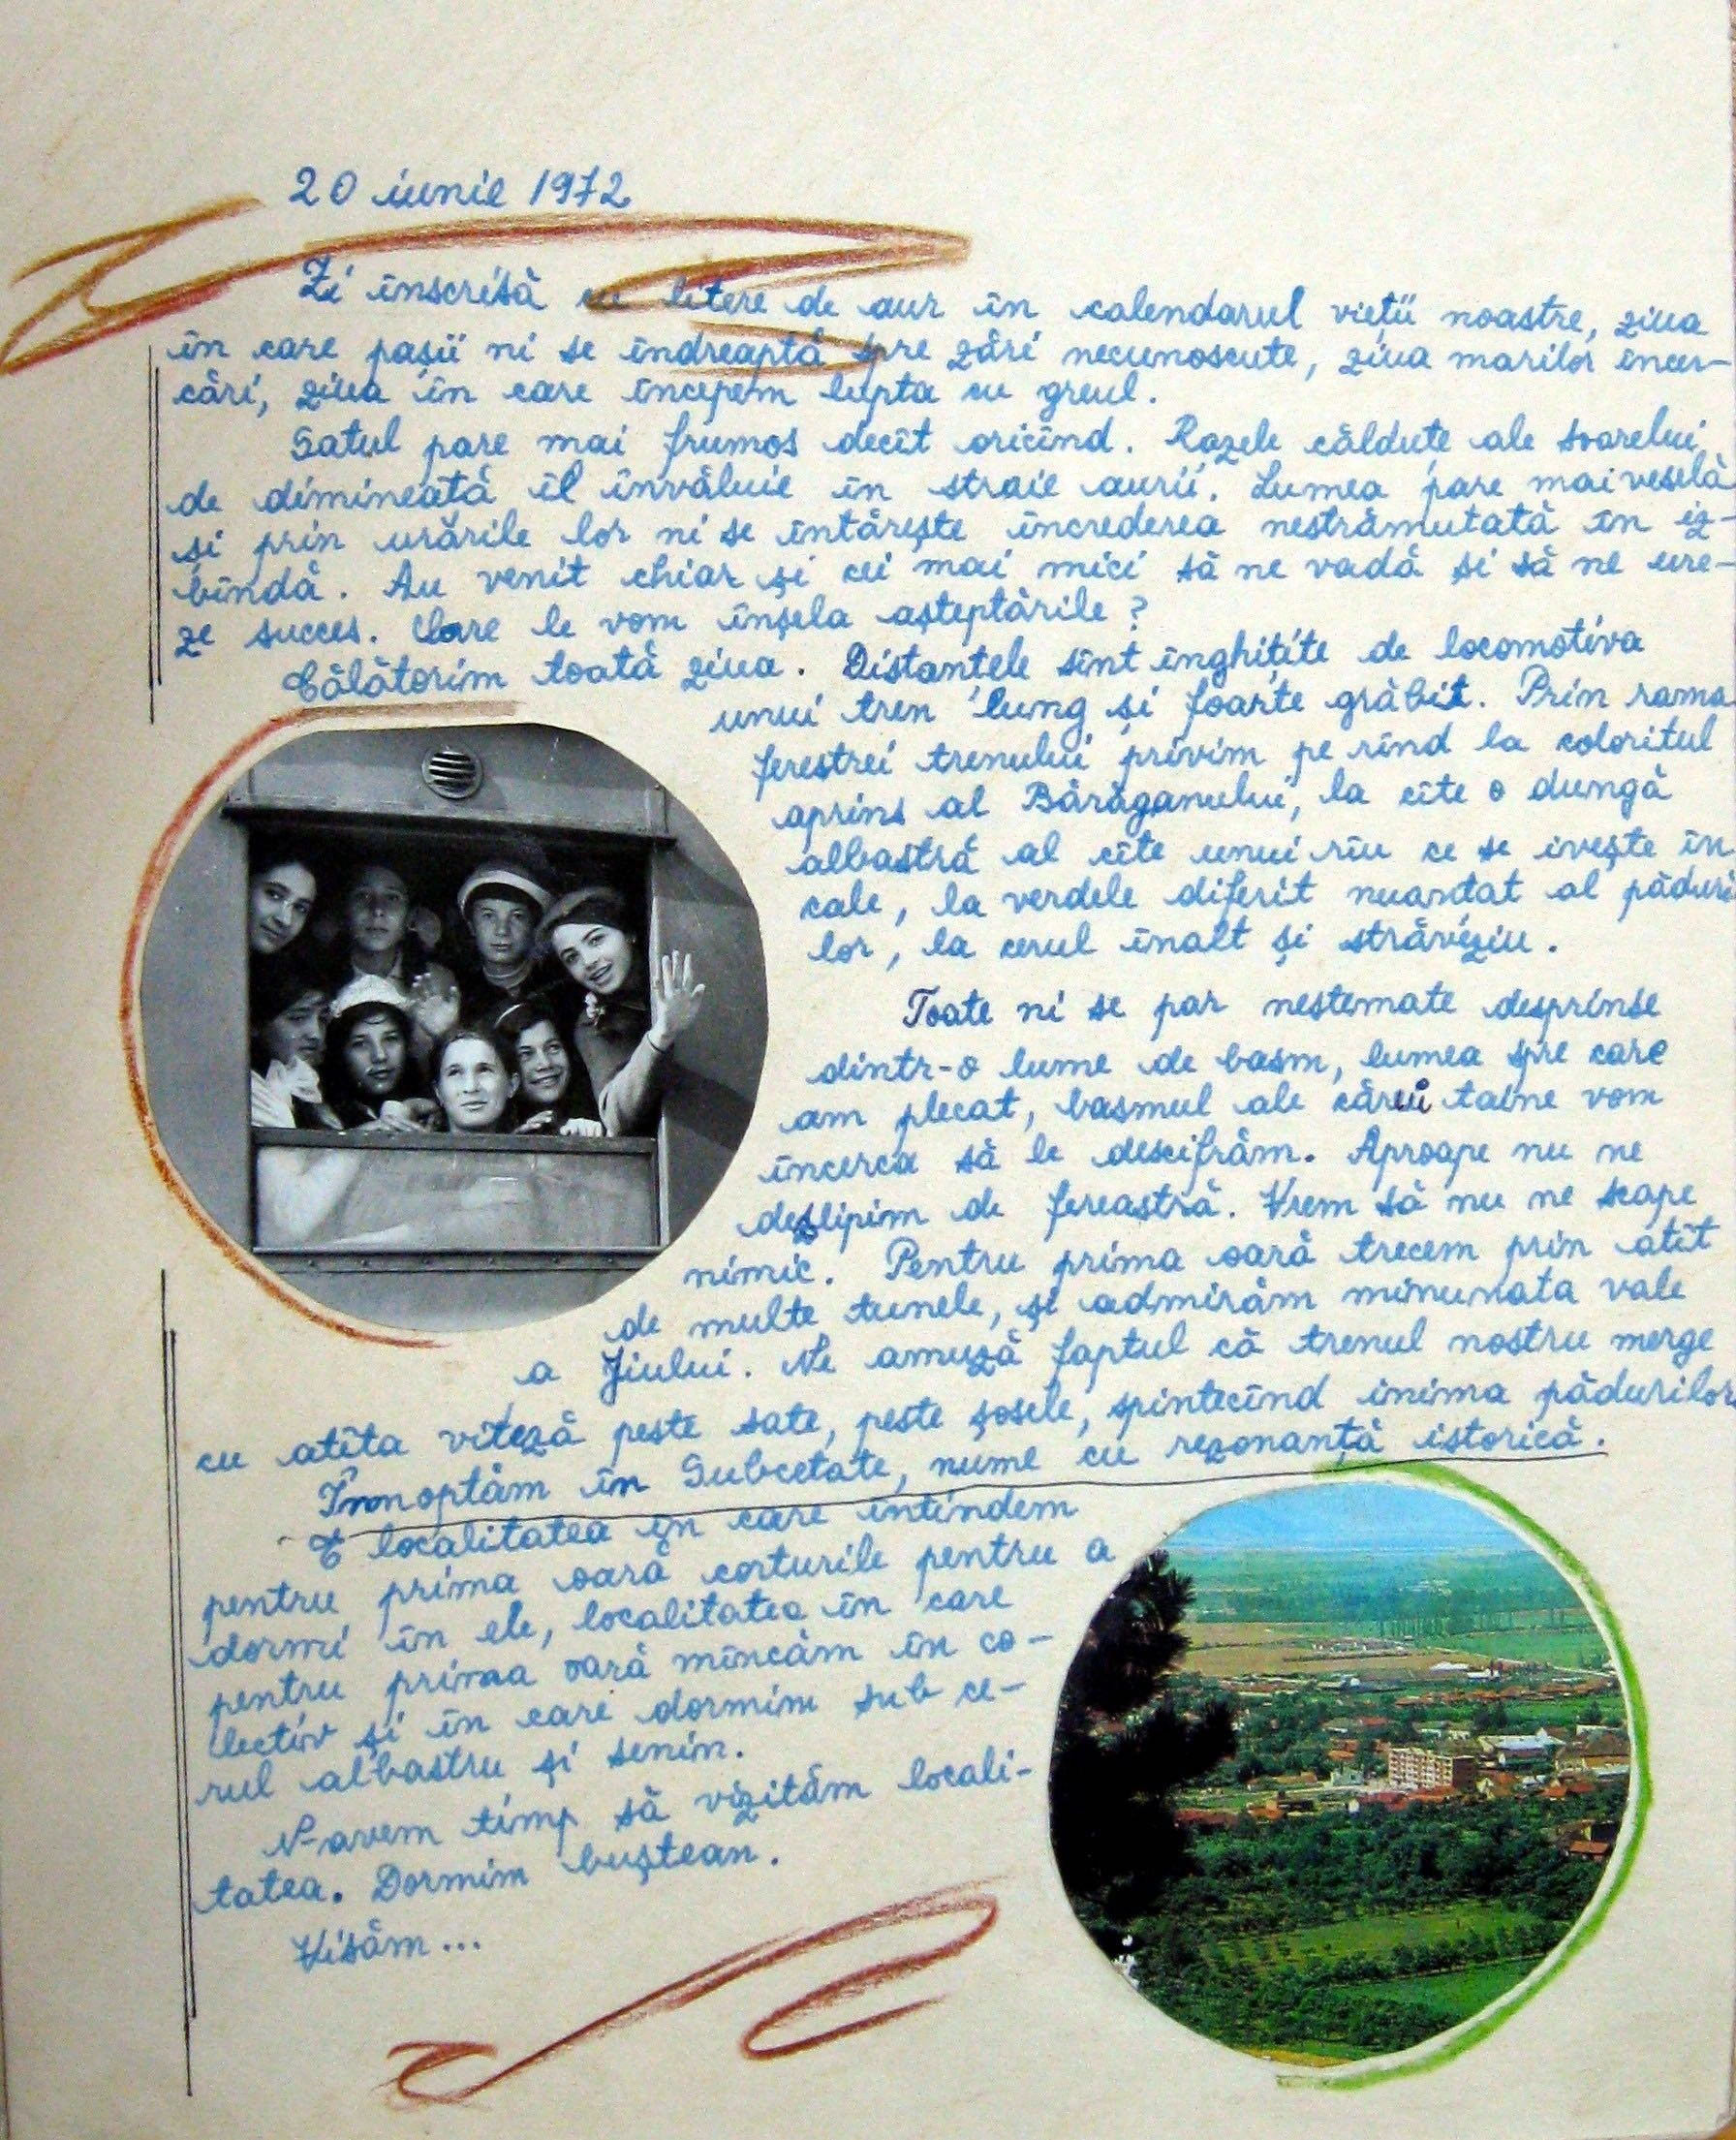 20 iunie 1972
Zi înscrisă cu litere de aur în calendarul vieții noastre, ziua
în care pașii ni se îndreaptă spre zări necunoscute, ziua marilor încer-
cări, ziua în care începem lupta cu greul.
Satul pare mai frumos decît oricînd. Razele căldute ale soarelui
de dimineață îl învăluie în straie aurii. Lumea pare mai veselă
și prin urările lor ni se întărește încrederea nestrămutată în iz-
bîndă. Au venit chiar și cei mai mici să ne vadă și să ne ure-
ze succes. Oare le vom înșela așteptările?
Călătorim toată ziua. Distanțele sînt înghițite de locomotiva
unui tren lung și foarte grăbit. Prin rama
ferestrei trenului privim pe rînd la coloritul
aprins al Bărăganului, la cîte o dungă
albastră al cîte unui rîu ce se ivește în
cale, la verdele diferit nuanțat al păduri
lor, la cerul înalt și străveziu.
Toate ni se par nestemate desprinse
dintr-o lume de basm, lumea spre care
am plecat, basmul ale cărui taine vom
încerca să le descifrăm. Aproape nu ne
dezlipim de fereastră. Vrem să nu ne scape
nimic. Pentru prima oară trecem prin atît
de multe tunele, și admirăm minunata vale
a Jiului. Ne amuză faptul că trenul nostru merge
cu atîta viteză peste sate, peste șosele, spintecînd inima pădurilor
Înnoptăm în Subcetate, nume cu rezonanță istorică.
E localitatea în care întindem
pentru prima oară corturile pentru a
dormi în ele, localitatea în care
pentru prima oară mîncăm în co-
lectiv și în care dormim sub ce-
rul albastru și senin.
N-avem timp să vizităm locali-
tatea. Dormim buștean.
Visăm...